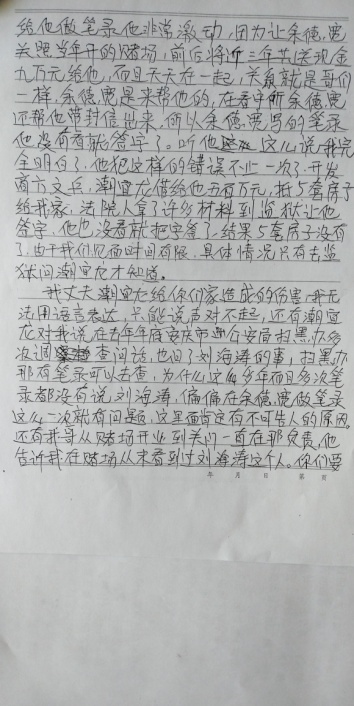 给他做笔录他非常激动,因为让余德宽
关照当年开的赌场,前后将近三年共送现金
九万元给他,而且天天在一起,关系就是哥们
一样,余德宽是来帮他的,在看守所余德宽
还帮他带封信出来,所以余德宽写的笔录
他没有看就签字了。听他这么说我完
全明白了,他犯这样的错误不止一次了,开发
商方文兵,潮宜龙借给他五百万元,抵5套房子
给我家,法院人拿了许多材料到监狱让他
签字,他也没看就把字签了,结果5套房子没有
了,由于我们见面时间有限,具体情况只有去监
狱问潮宜龙才知道。
我丈夫潮宜龙给你们家造成的伤害,我无
法用语言表达,只能说声对不起,还有潮宜
龙对我说在去年年底安庆市公安局扫黑办多
次调查问话,也问了刘海涛的事,扫黑办
那有笔录可以去查,为什么这么多年而且多次笔
录都没有说刘海涛,偏偏在余德宽做笔录
这么一次就有问题,这里面肯定有不可告人的原因。
还有我哥从赌场开业到关门一直在那负责,他
告诉我在赌场从来看到过刘海涛这个人。你们要
年 月 日 第 页